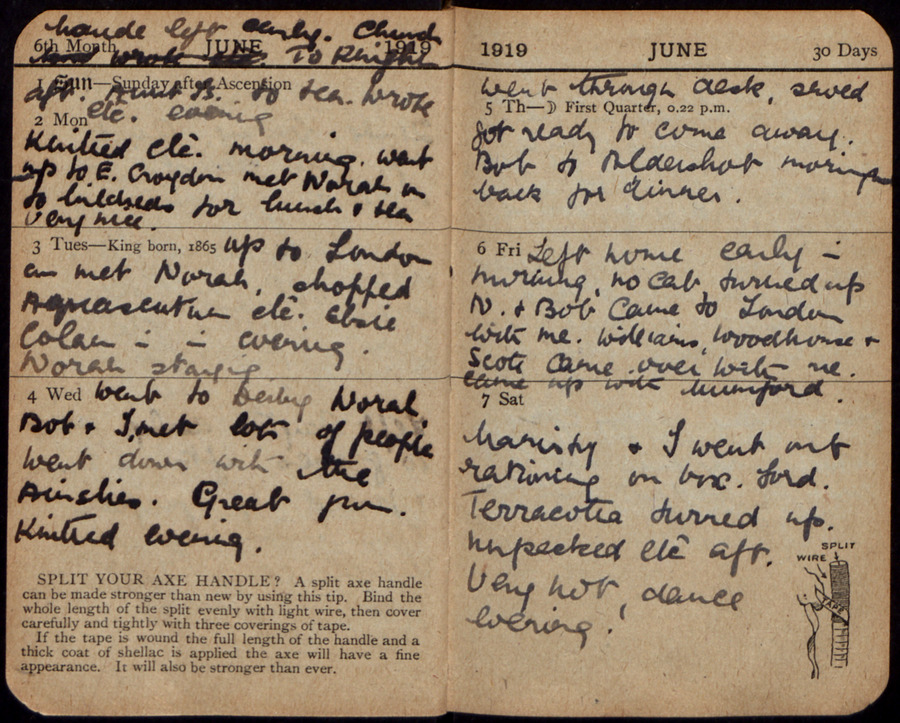 haude left early. Church
6th Month JUNE 1919
and wrote To Knight
1 Sun—Sunday after Ascension
aft. Aunt B. to tea. wrote
2 Mon etc. evening
Knitted etc. morning. went
up to E. Croydon met Norah on
to for lunch & tea
Very nice.
3 Tues—King born, 1865 up to London
an met Norah, shopped
Aquascutum etc. Elsie
in evening.
Norah staying
4 Wed went to Derby Norah
Bob & I, met lots of people
went down with the
Ainslies. Great fun.
Knitted evening.
SPLIT YOUR AXE HANDLE? A split axe handle
can be made stronger than new by using this tip. Bind the
whole length of the split evenly with light wire, then cover
carefully and tightly with three coverings of tape.
If the tape is wound the full length of the handle and a
thick coat of shellac is applied the axe will have a fine
appearance. It will also be stronger than ever.
1919 JUNE 30 Days
went through desk, sewed
5 Th—☽ First Quarter, 0.22 p.m.
got ready to come away.
Bob to Aldershot morning
back for dinner.
6 Fri Left home early in
morning, no cab turned up
N. & Bob came to London
with me. Williams, Woodhouse &
Scott came over with me.
came up with Mumford.
7 Sat
& I went out
rationing on box. Ford.
Terracotta turned up.
Unpacked etc aft.
Very hot, dance
evening.
SPLIT
WIRE
TAPE